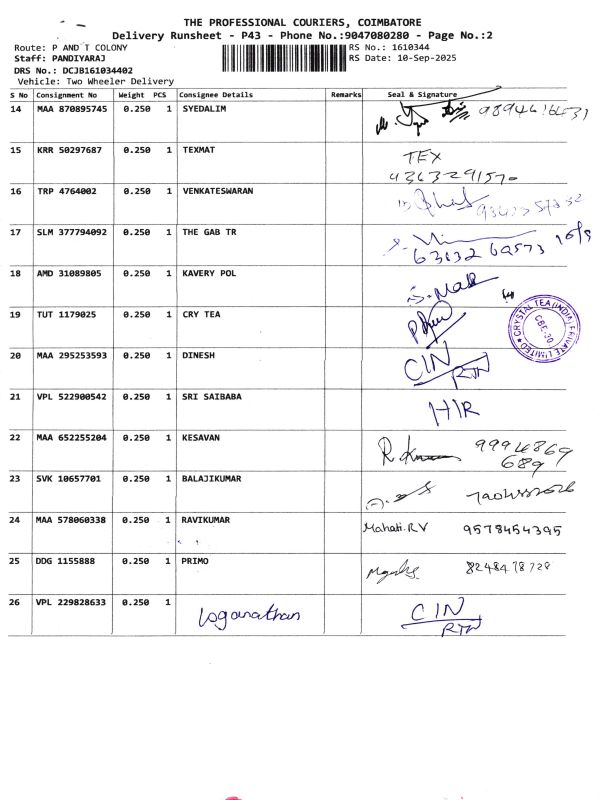 THE PROFESSIONAL COURIERS, COIMBATORE
Delivery Runsheet - P43 - Phone No.:9047080280 - Page No.:2
Route: P AND T COLONY RS No.: 1610344
Staff: PANDIYARAJ RS Date: 10-Sep-2025
DRS No.: DCJB161034402
Vehicle: Two Wheeler Delivery
S No Consignment No Weight PCS Consignee Details Remarks Seal & Signature
14 MAA 870895745 0.250 1 SYEDALIM
15 KRR 50297687 0.250 1 TEXMAT TEX
16 TRP 4764002 0.250 1 VENKATESWARAN
17 SLM 377794092 0.250 1 THE GAB TR
63832 60573
18 AMD 31089805 0.250 1 KAVERY POL
19 TUT 1179025 0.250 1 CRY TEA
CRYSTAL TEA (INDIA) PRIVATE LIMITED
CBE-30
20 MAA 295253593 0.250 1 DINESH CIN
RTN
21 VPL 522900542 0.250 1 SRI SAIBABA HIR
22 MAA 652255204 0.250 1 KESAVAN 9994869
689
23 SVK 10657701 0.250 1 BALAJIKUMAR
24 MAA 578060338 0.250 1 RAVIKUMAR Mahati.RV 9578454395
25 DDG 1155888 0.250 1 PRIMO 8248478728
26 VPL 229828633 0.250 1 Loganathan CIN
RTN